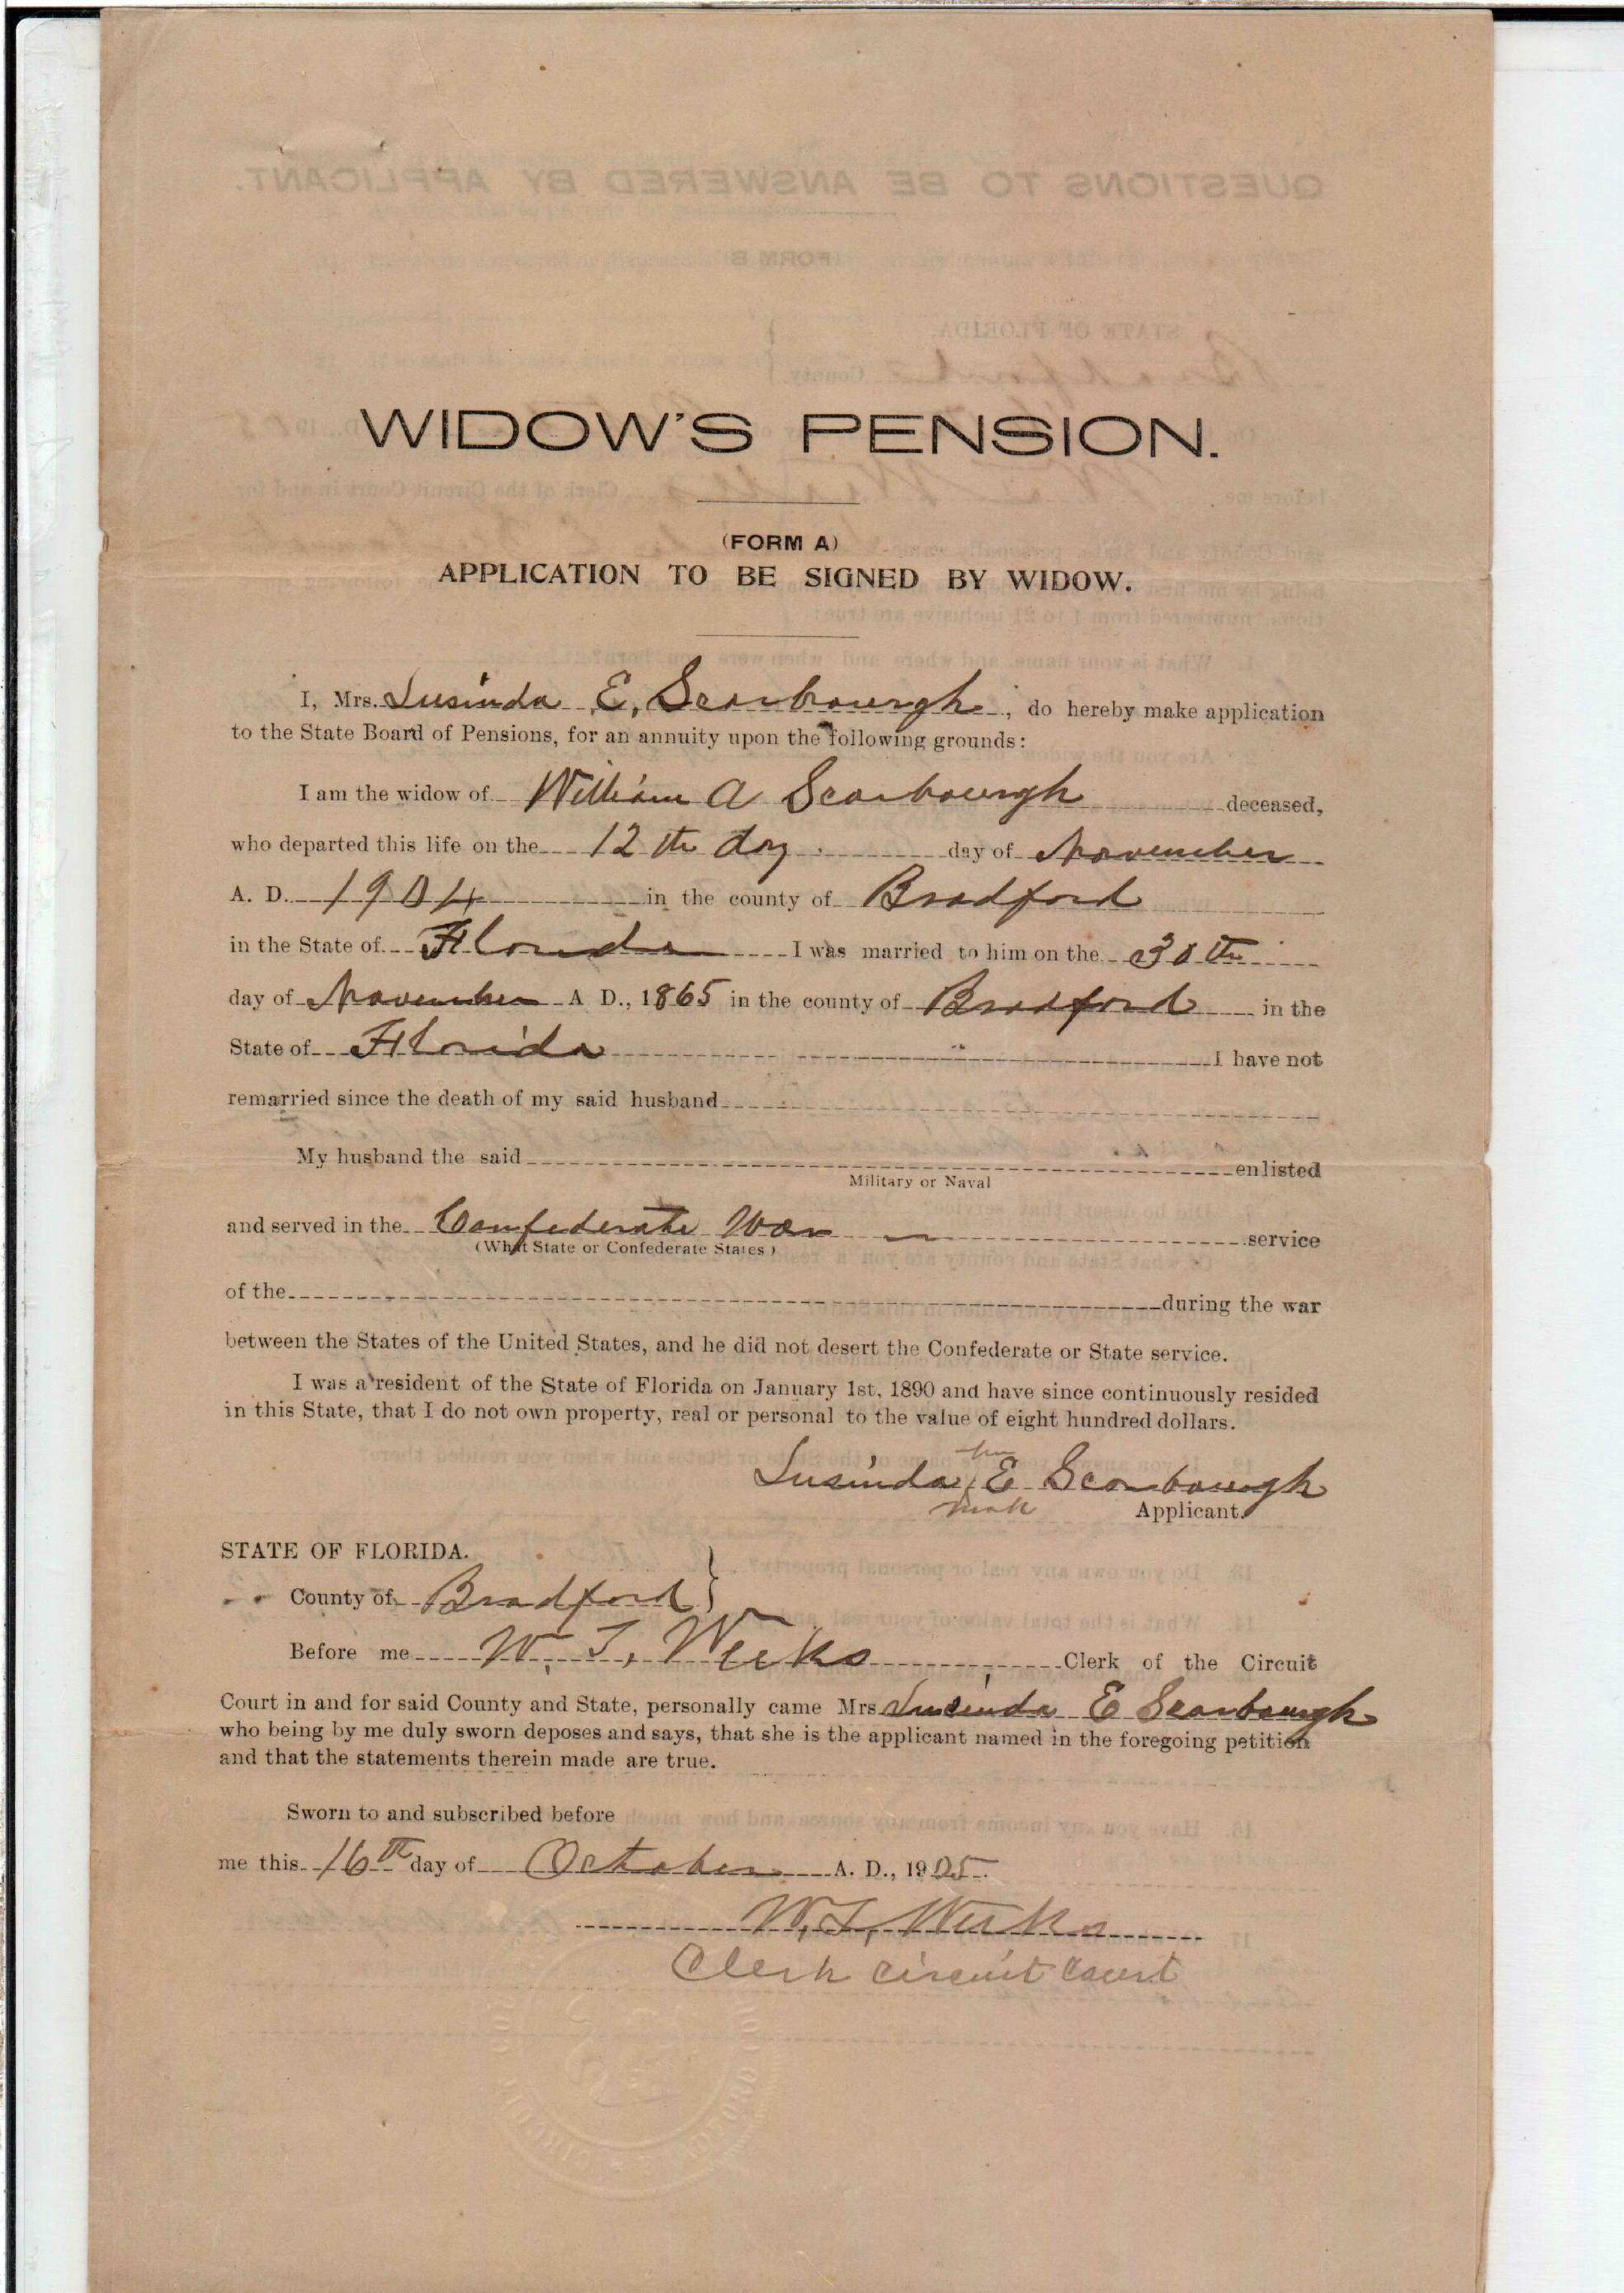 WIDOW'S PENSION.
(FORM A)
APPLICATION TO BE SIGNED BY WIDOW.
I, Mrs. Lusinda E, Scarbourgh, do hereby make application
to the State Board of Pensions, for an annuity upon the following grounds:
I am the widow of William A Scarbourgh deceased,
who departed this life on the 12th day day of November
A. D. 1904 in the county of Bradford
in the State of Florida I was married to him on the 30th
day of November A D., 1865 in the county of Bradford in the
State of Florida I have not
remarried since the death of my said husband
My husband the said enlisted
Military or Naval
and served in the Confederate War service
(What State or Confederate States)
of the during the war
between the States of the United States, and he did not desert the Confederate or State service.
I was a resident of the State of Florida on January 1st, 1890 and have since continuously resided
in this State, that I do not own property, real or personal to the value of eight hundred dollars.
her
Lusinda E Scarbourgh
mark Applicant.
STATE OF FLORIDA.
County of Bradford }
Before me W. T, Weeks Clerk of the Circuit
Court in and for said County and State, personally came Mrs Lusinda E Scarbourgh
who being by me duly sworn deposes and says, that she is the applicant named in the foregoing petition
and that the statements therein made are true.
Sworn to and subscribed before
me this 16th day of October A. D., 1905.
W. T, Weeks
Clerk Circuit Court